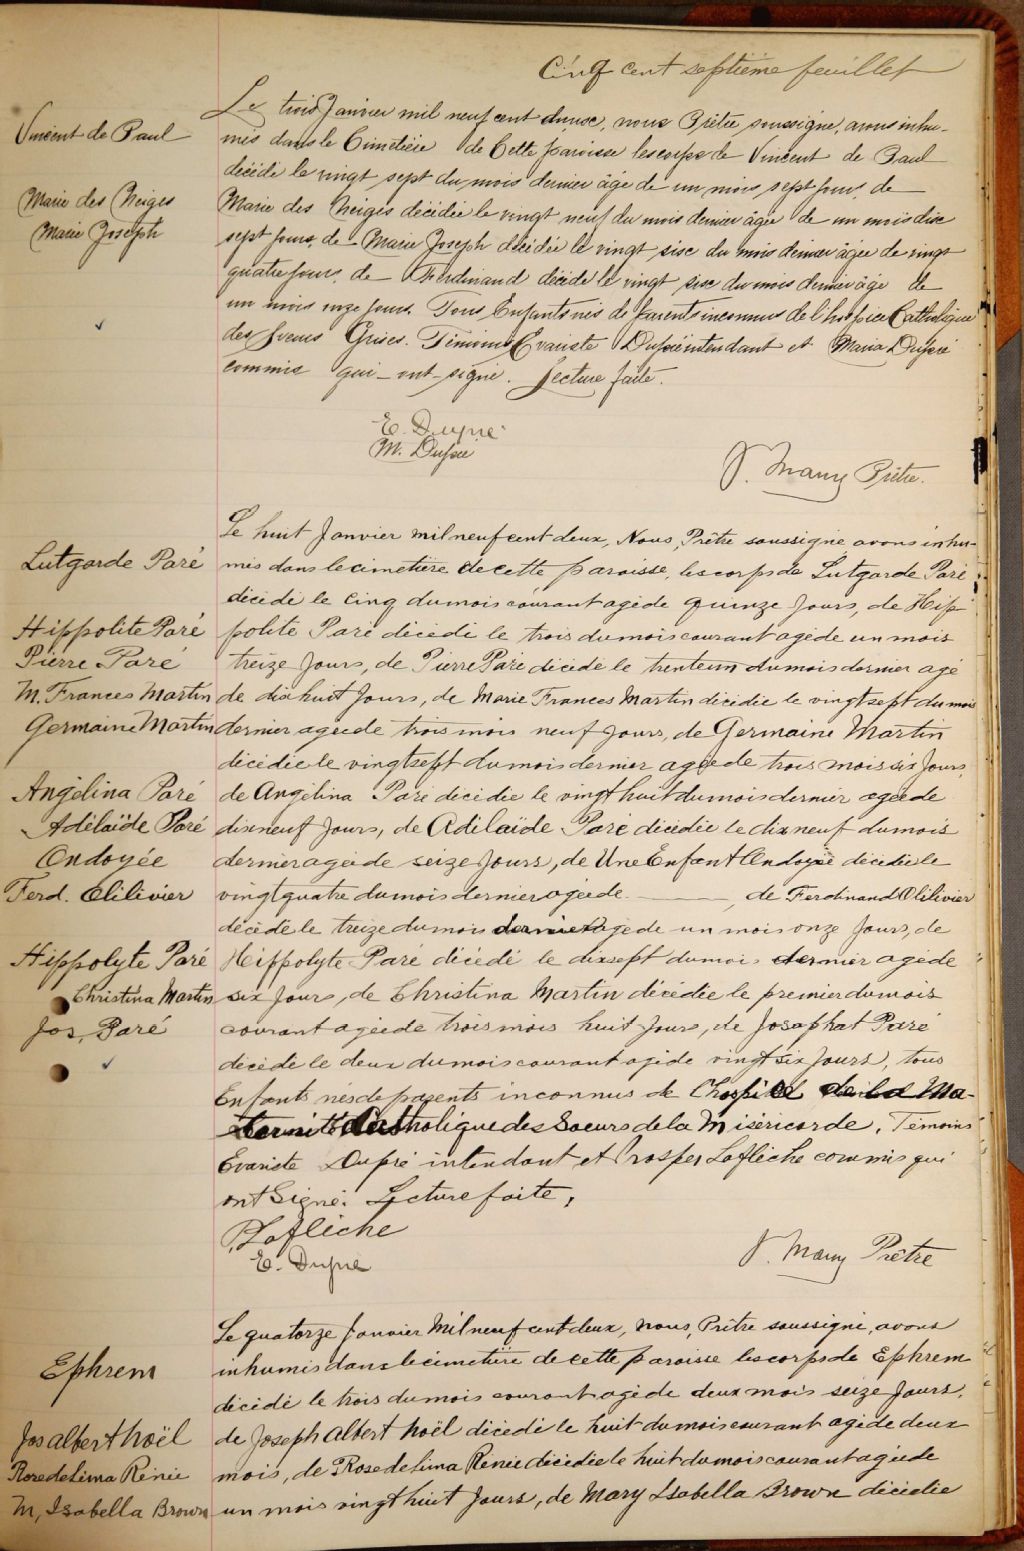 Cinq cent septième feuillet
Vincent de Paul
Marie des Neiges
Marie Joseph
Le trois Janvier mil neuf cent deux, nous Prêtre soussigné, avons inhu-
mis dans le Cimetière de Cette paroisse les corps de Vincent de Paul
décédé le vingt sept du mois dernier âgé de un mois sept jours, de
Marie des Neiges décédée le vingt neuf du mois dernier âgée de un mois dix
sept jours, de Marie Joseph décédée le vingt six du mois dernier âgée de vingt
quatre jours, de Ferdinand décédé le vingt six du mois dernier âgé de
un mois onze jours. Tous Enfants nés de parents inconnus de l'hospice Catholique
des Sœurs Grises. Témoins Evariste Dupré intendant et Maria Dupré
commis qui ont signé. Lecture faite.
E. Dupré
M. Dupré
Prêtre.
Lutgarde Paré
Hippolite Paré
Pierre Paré
M. Frances Martin
Germaine Martin
Angélina Paré
Adélaïde Paré
Ondoyée
Ferd. Olilivier
Hippolyte Paré
Christina Martin
Jos, Paré
Le huit Janvier mil neuf cent deux, Nous, Prêtre soussigné avons inhu-
mis dans le cimetière de cette paroisse, les corps de Lutgarde Paré
décédé le Cinq du mois courant agé de quinze Jours, de Hip-
polite Paré décédé le trois du mois courant agé de un mois
treize Jours, de Pierre Paré décédé le trente un du mois dernier agé
de dix huit Jours, de Marie Frances Martin décédée le vingt sept du mois
dernier agée de trois mois neuf Jours, de Germaine Martin
décédée le vingt sept du mois dernier agée de trois mois six Jours,
de Angélina Paré décédée le vingt huit du mois dernier agée de
dix neuf Jours, de Adélaïde Paré décédée le dix neuf du mois
dernier agée de seize Jours, de Une Enfant Ondoyée décédée le
vingt quatre du mois dernier agée de ———, de Ferdinand Olilivier
décédé le treize du mois dernier agé de un mois onze Jours, de
Hippolyte Paré décédé le dix sept du mois dernier agé de
six Jours, de Christina Martin décédée le premier du mois
courant agée de trois mois huit Jours, de Josaphat Paré
décédé le deux du mois courant agé de vingt six Jours, tous
Enfants nés de parents inconnus de l'hospice de la Ma-
ternité Catholique des Soeurs de la Miséricorde. Témoins
Evariste Dupré intendant et Prosper Laflèche commis qui
ont Signé. Lecture faite,
P. Laflèche
E. Dupré
Prêtre
Ephrem
Jos albert Noël
Rose de Lima Rénée
M, Isabella Brown
Le quatorze Janvier Mil neuf cent deux, Nous, Prêtre soussigné, avons
inhumis dans le cimetière de cette paroisse les corps de Ephrem
décédé le trois du mois courant agé de deux mois seize Jours,
de Joseph albert Noël décédé le huit du mois courant agé de deux
mois, de Rose de Lima Renée décédée le huit du mois courant agée de
un mois vingt huit Jours, de Mary Isabella Brown décédée